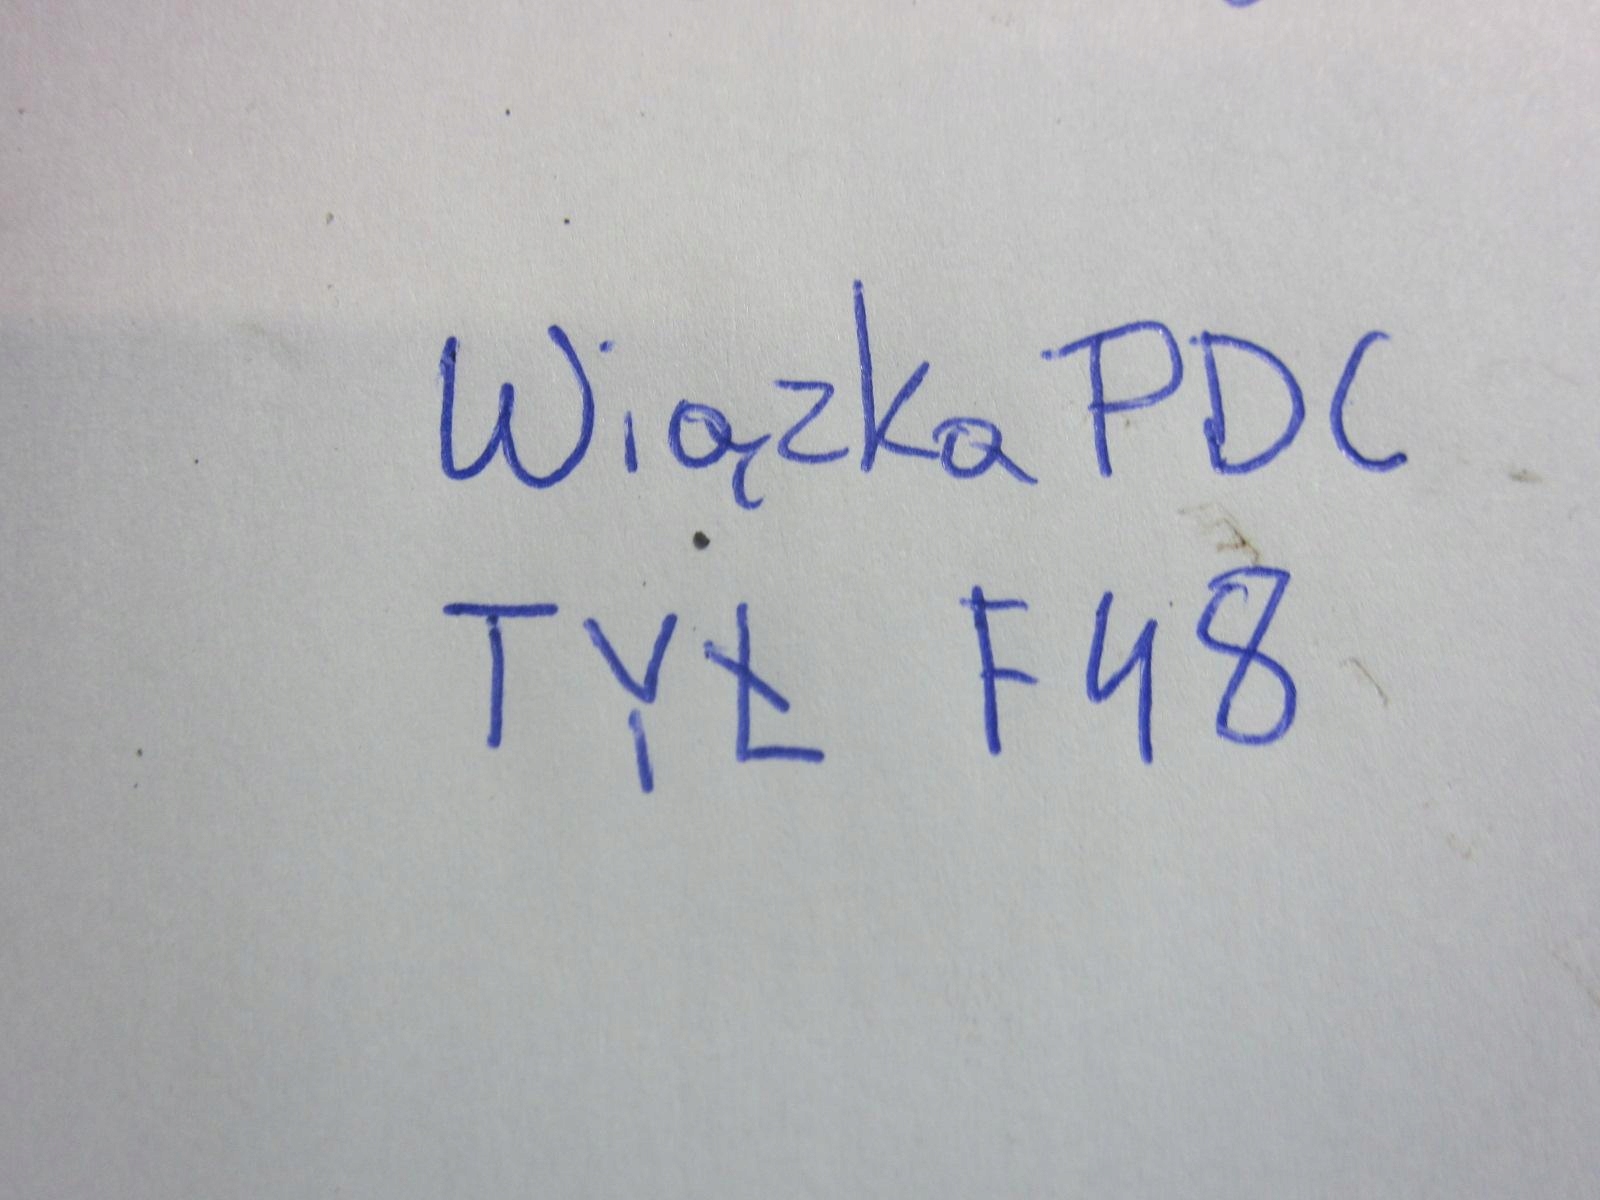 Wiązka PDC
TYŁ F48